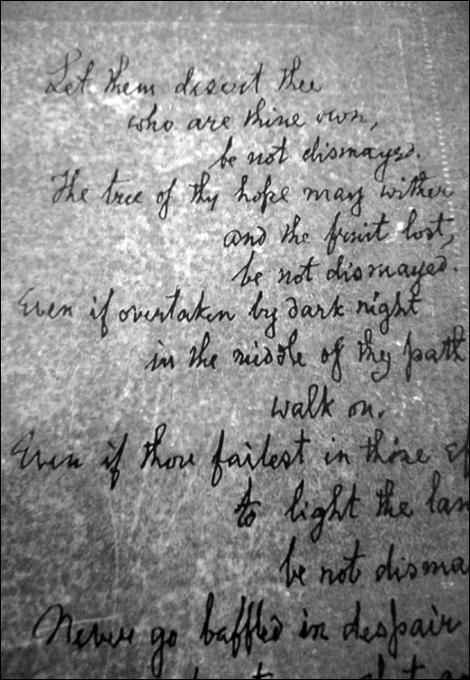 Let them desert thee
who are thine own,
be not dismayed.
The tree of thy hope may wither
and the fruit lost,
be not dismayed.
Even if overtaken by dark night
in the middle of thy path
walk on.
Even if thou failest in thine ef
to light the lam
be not disma
Never go baffled in despair